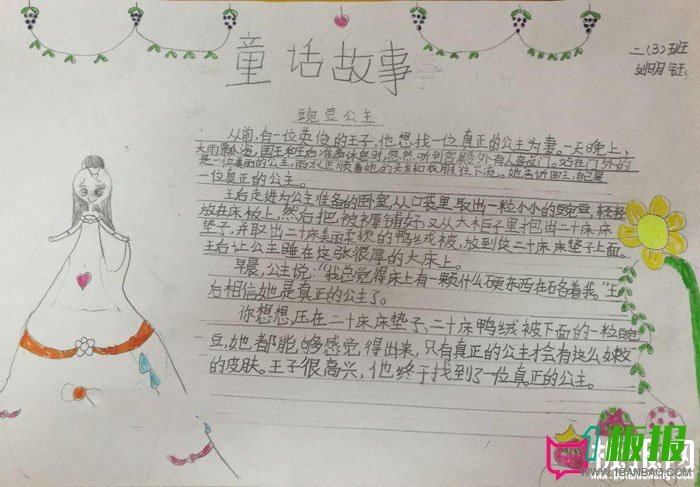 童话故事
二(3)班
豌豆公主
从前,有一位英俊的王子,他想找一位真正的公主为妻。一天晚上,
大雨暴 国王和王后准备休息时,忽然,听到宫殿外有人 门。站在门外的
是一位美丽的公主,雨水正顺着她的头发和衣服往下流。她告诉国王,自己是
一位真正的公主。
王后走进为公主准备的卧室,从口袋里取出一粒小小的豌豆,轻轻
放在床板上,然后把被褥铺好,又从大柜子里抱出二十床床
垫子,并取出二十床美丽柔软的鸭绒被,放到这二十床床垫子上面。
王后让公主睡在这张很厚的大床上。
早晨,公主说:“我总觉得床上有一颗什么硬东西在硌着我。”王
后相信她是真正的公主了。
你想想,压在二十床床垫子、二十床鸭绒被下面的一粒豌
豆,她都能够感觉得出来,只有真正的公主才会有这么嫩
的皮肤。王子很高兴,他终于找到了一位真正的公主。
1板报
WWW.1BANBAO.COM